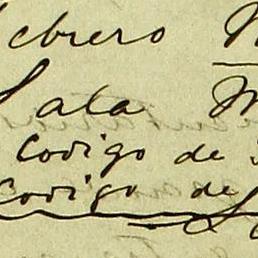 ebrero
Sala
Codigo de
Codigo de